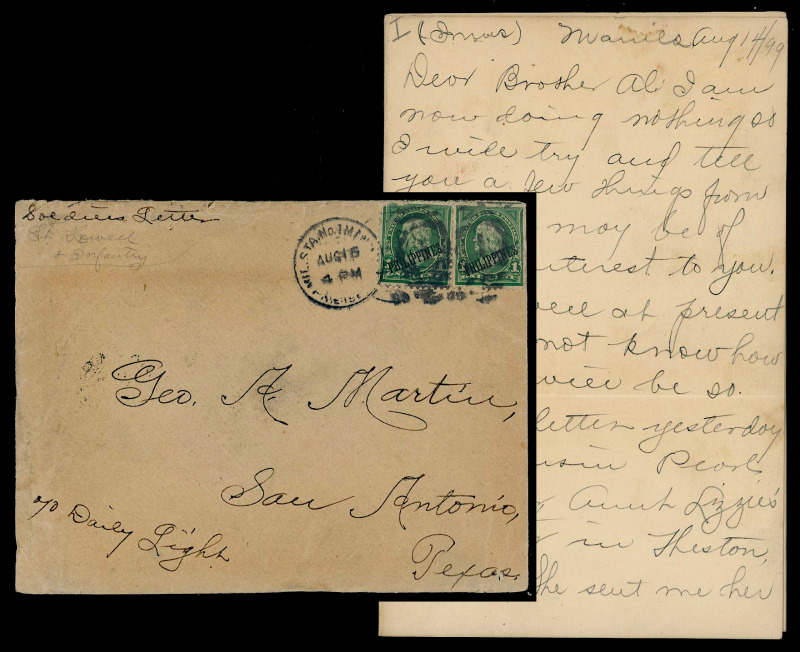 I (Imus) Manila Aug 14/99
Dear Brother Al. I am
now doing nothing so
I will try and tell
you a few things from
may be of
interest to you.
well at present
not know how
will be so.
letter yesterday
Pearl
Aunt Lizzie's
in Theston,
She sent me her
Soldiers Letter
Lowell
Infantry
MIL. STA. No. 1 MANILA
AUG 15
4 PM
PHILIPPINES
PHILIPPINES
1
Geo. A. Martin,
San Antonio,
Texas.
c/o Daily Light